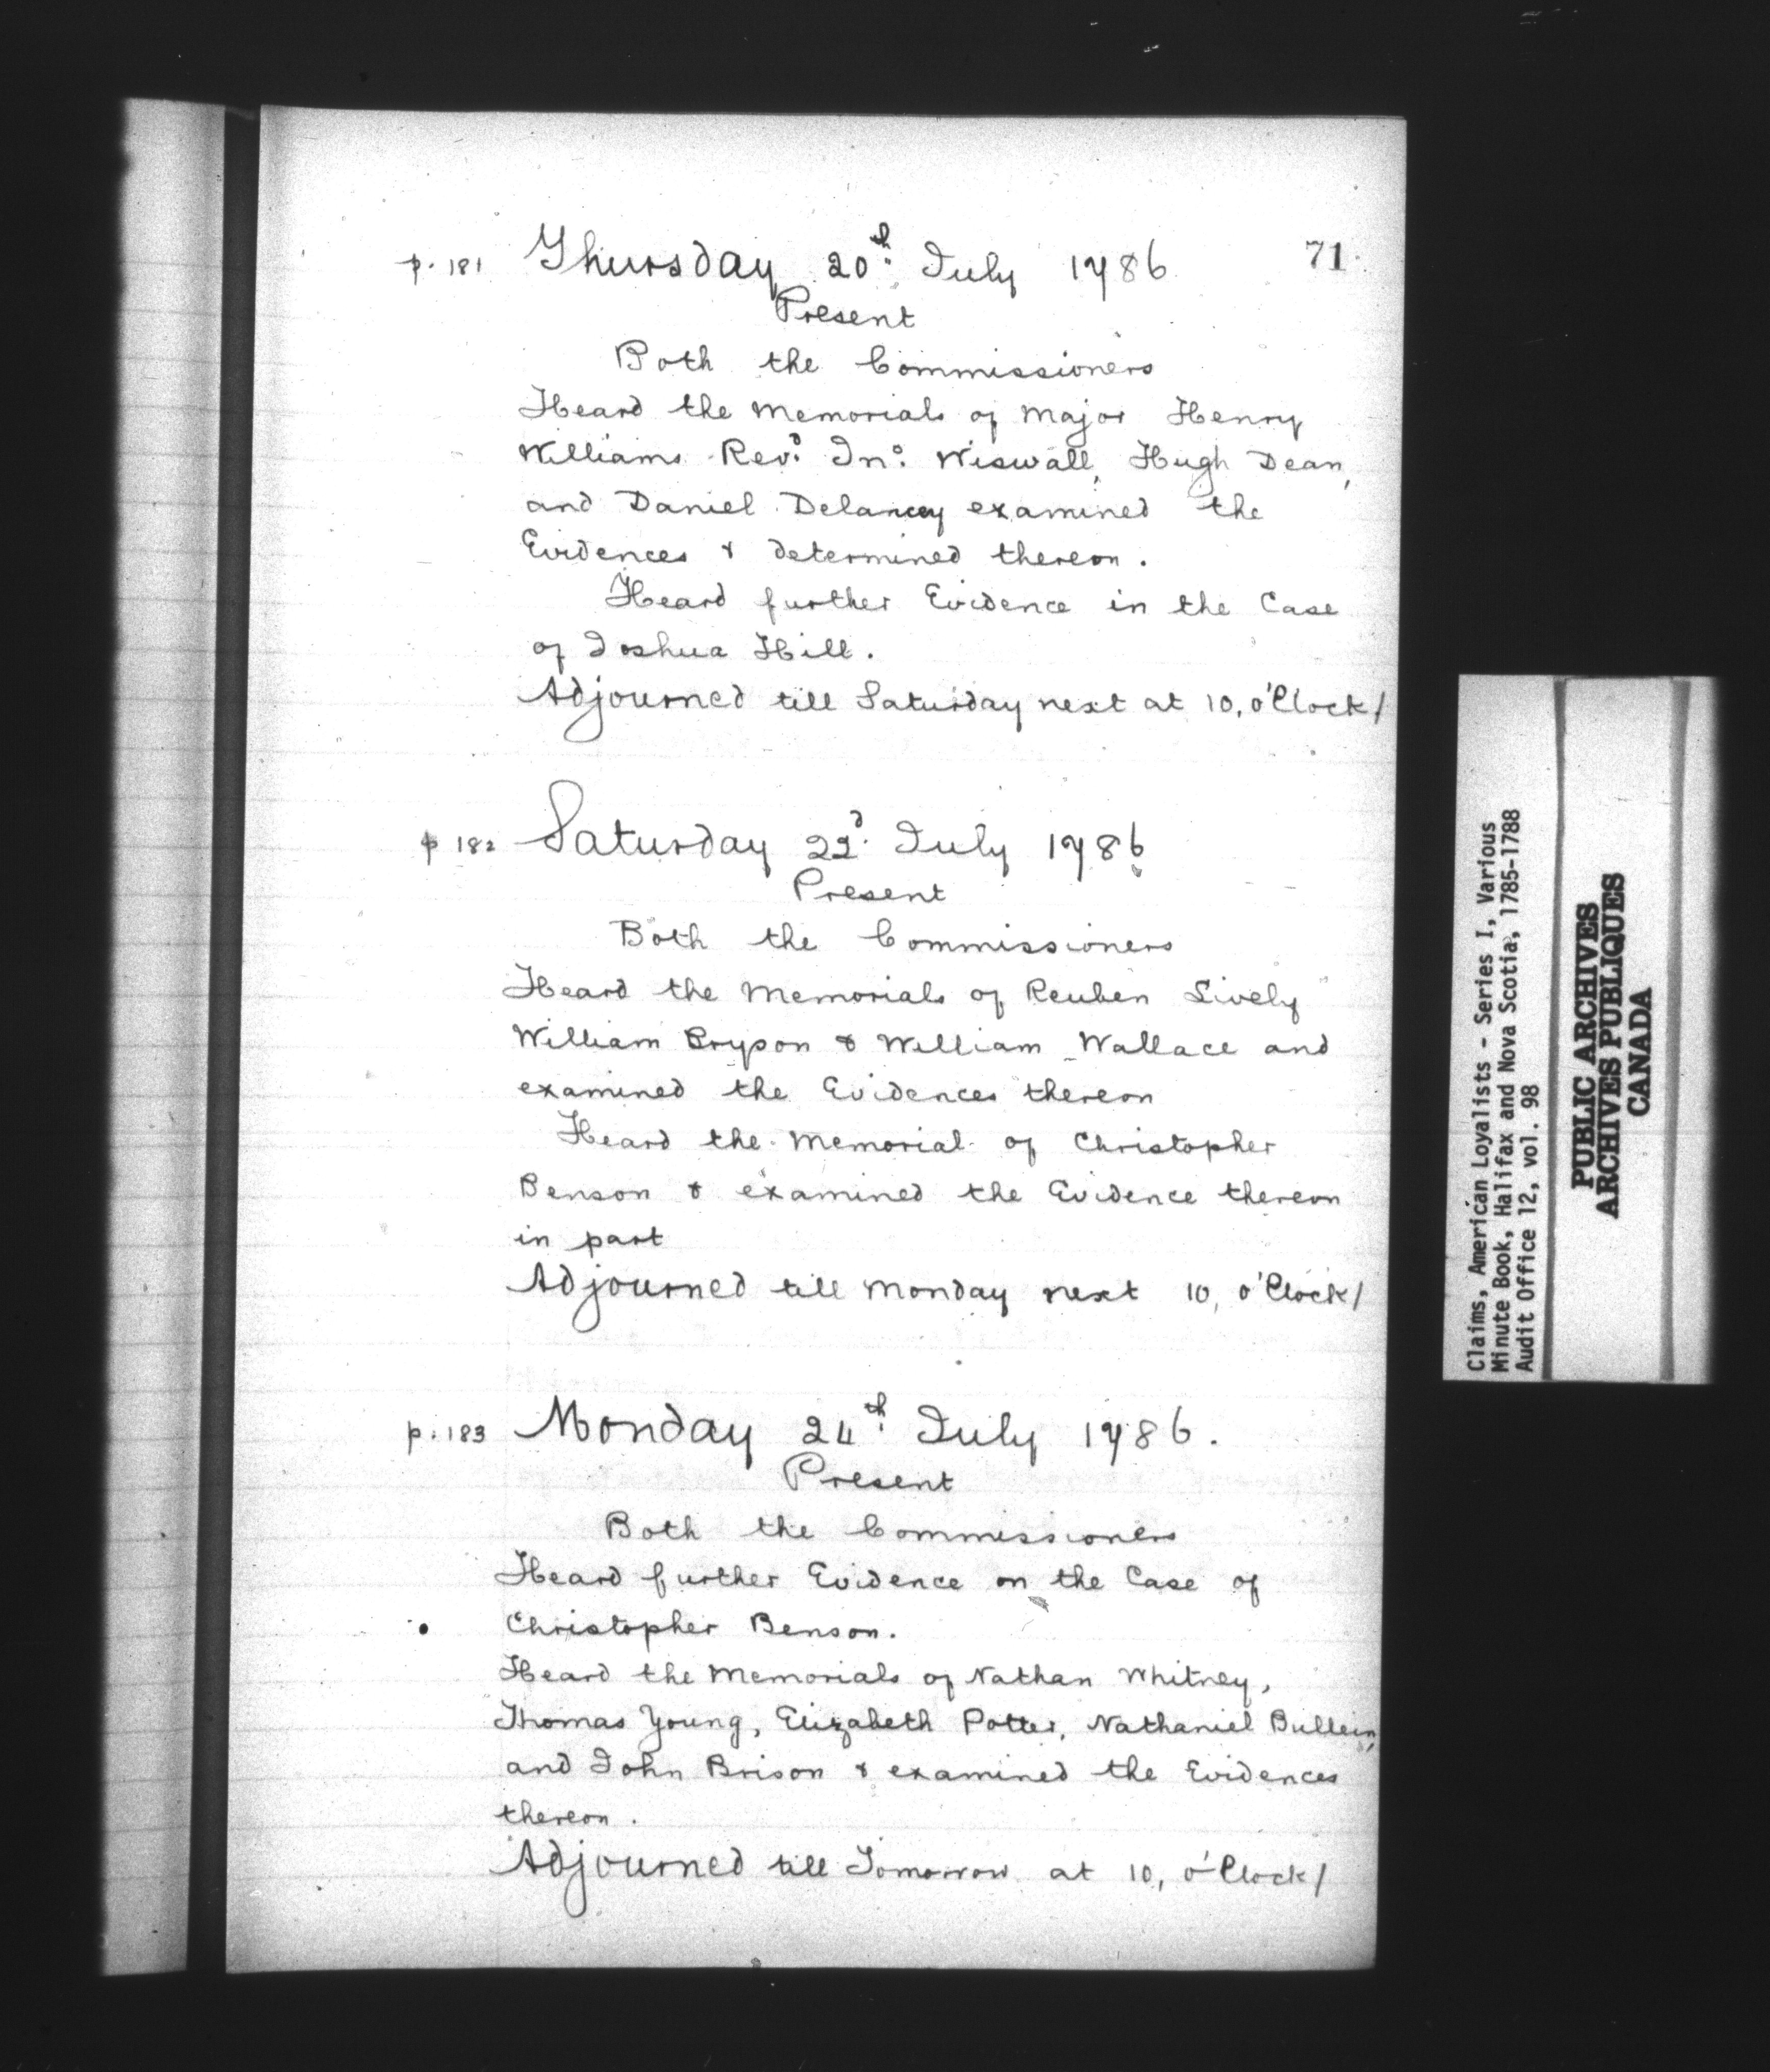 71
p. 181 Thursday 20th July 1786
Present
Both the Commissioners
Heard the Memorials of Major Henry
Williams Revd. Jno. Wiswall, Hugh Dean,
and Daniel Delancey examined the
Evidences & determined thereon.
Heard further Evidence in the Case
of Joshua Hill.
Adjourned till Saturday next at 10, o'Clock/
p 182 Saturday 22d. July 1786
Present
Both the Commissioners
Heard the Memorials of Reuben Lively
William Bryson & William Wallace and
examined the Evidences thereon
Heard the Memorial of Christopher
Benson & examined the Evidence thereon
in part
Adjourned till Monday next 10, o'Clock/
p. 183 Monday 24th. July 1786.
Present
Both the Commissioners
Heard further Evidence on the Case of
Christopher Benson.
Heard the Memorials of Nathan Whitney,
Thomas Young, Elizabeth Potter, Nathaniel Bullein,
and John Brison & examined the Evidences
thereon.
Adjourned till Tomorrow at 10, o'Clock/
Claims, American Loyalists - Series I, Various
Minute Book, Halifax and Nova Scotia, 1785-1788
Audit Office 12, vol. 98
PUBLIC ARCHIVES
ARCHIVES PUBLIQUES
CANADA